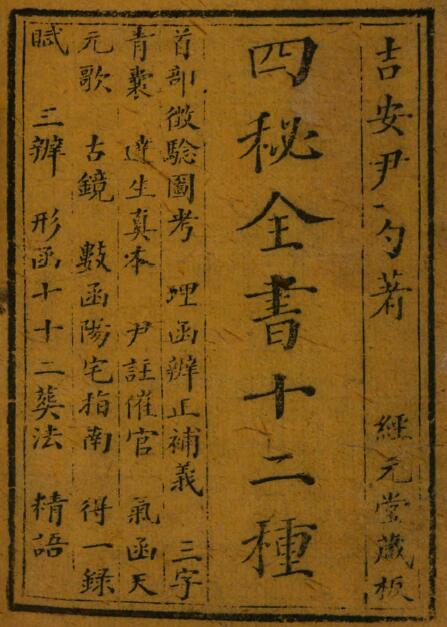 吉安尹一勺著　經元堂藏板
四秘全書十二種
首部徵驗圖考　理函辨正補義　三字
青囊　達生真本　尹註催官　氣函天
元歌　古鏡　數函陽宅指南　得一録
賦　三辦　形函十十二葬法　精語